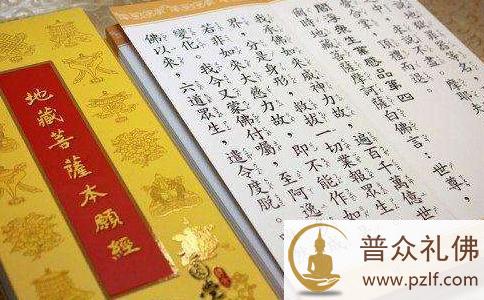 地藏菩薩本願經
說不盡。摩耶夫
頂禮而退。
閻浮眾生業感品第四
爾時地藏菩薩摩訶薩白佛言：世尊，
我承佛如來威神力故，遍百千萬億世
界，分是身形，救拔一切業報眾生
若非如來大慈力故，即不能作如
變化。我今又蒙佛付囑，至阿逸
佛以來，六道眾生，遣令度脫。
普众礼佛
www.pzlf.com